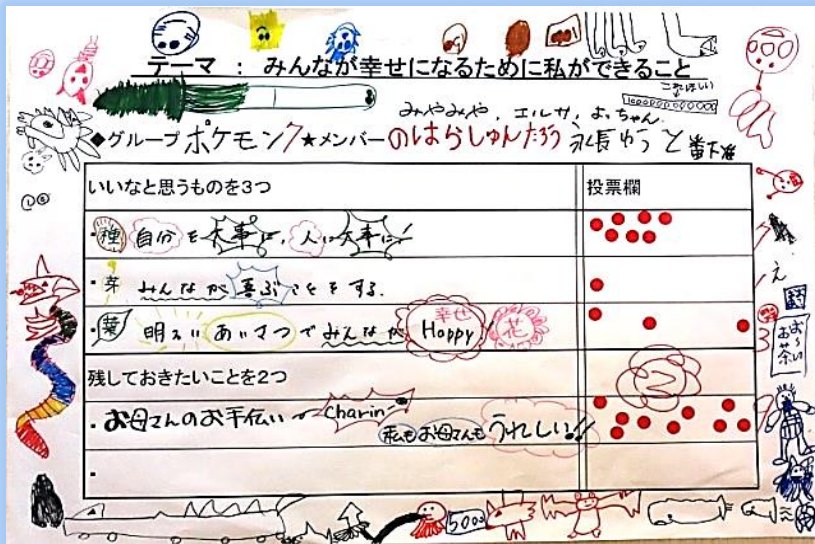 テーマ : みんなが幸せになるために私ができること
これほしい
みやみや、エルサ、よっちゃん
◆グループ ポケモン7★メンバー のはらしゅんたろう 永長ゆうと
いいなと思うものを3つ 投票欄
・種 自分を大事に、人に大事に!
・芽 みんなが喜ぶことをする.
・葉 明るいあいさつでみんなが Happy 幸せ 花
残しておきたいことを2つ
・お母さんのお手伝い Charin
私もお母さんも うれしい!!
・
お〜いお茶
5000